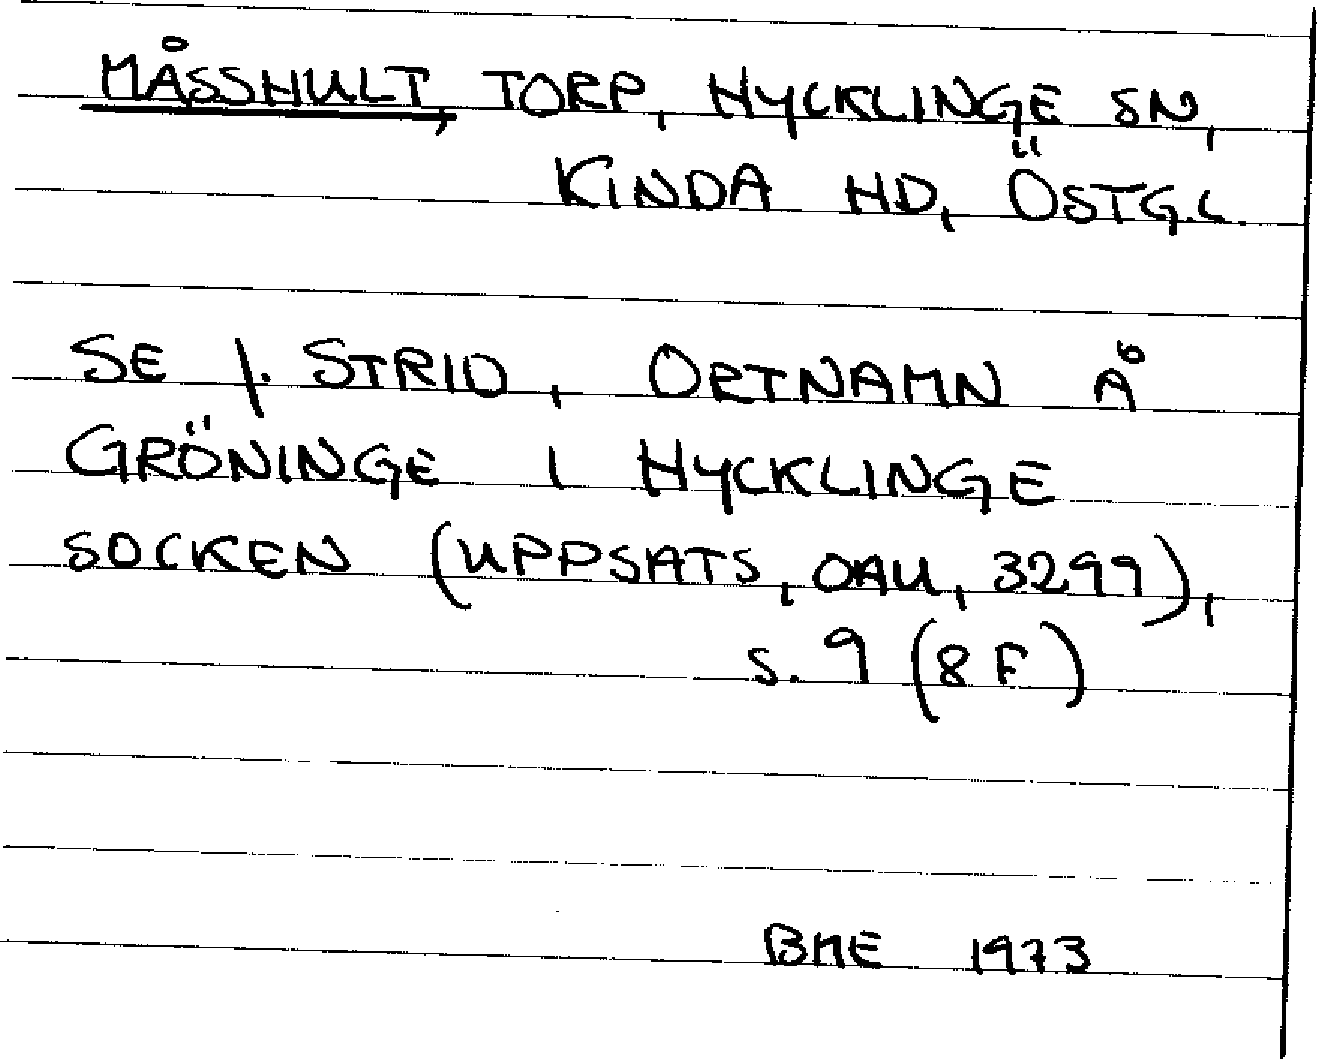 MÅSSHULT, TORP, HYCKLINGE SN,
KINDA HD, ÖSTG.L.
SE J. STRID, ORTNAMN Å
GRÖNINGE I HYCKLINGE
SOCKEN (UPPSATS, OAU, 3299),
S. 9 (8 F)
BME 1973